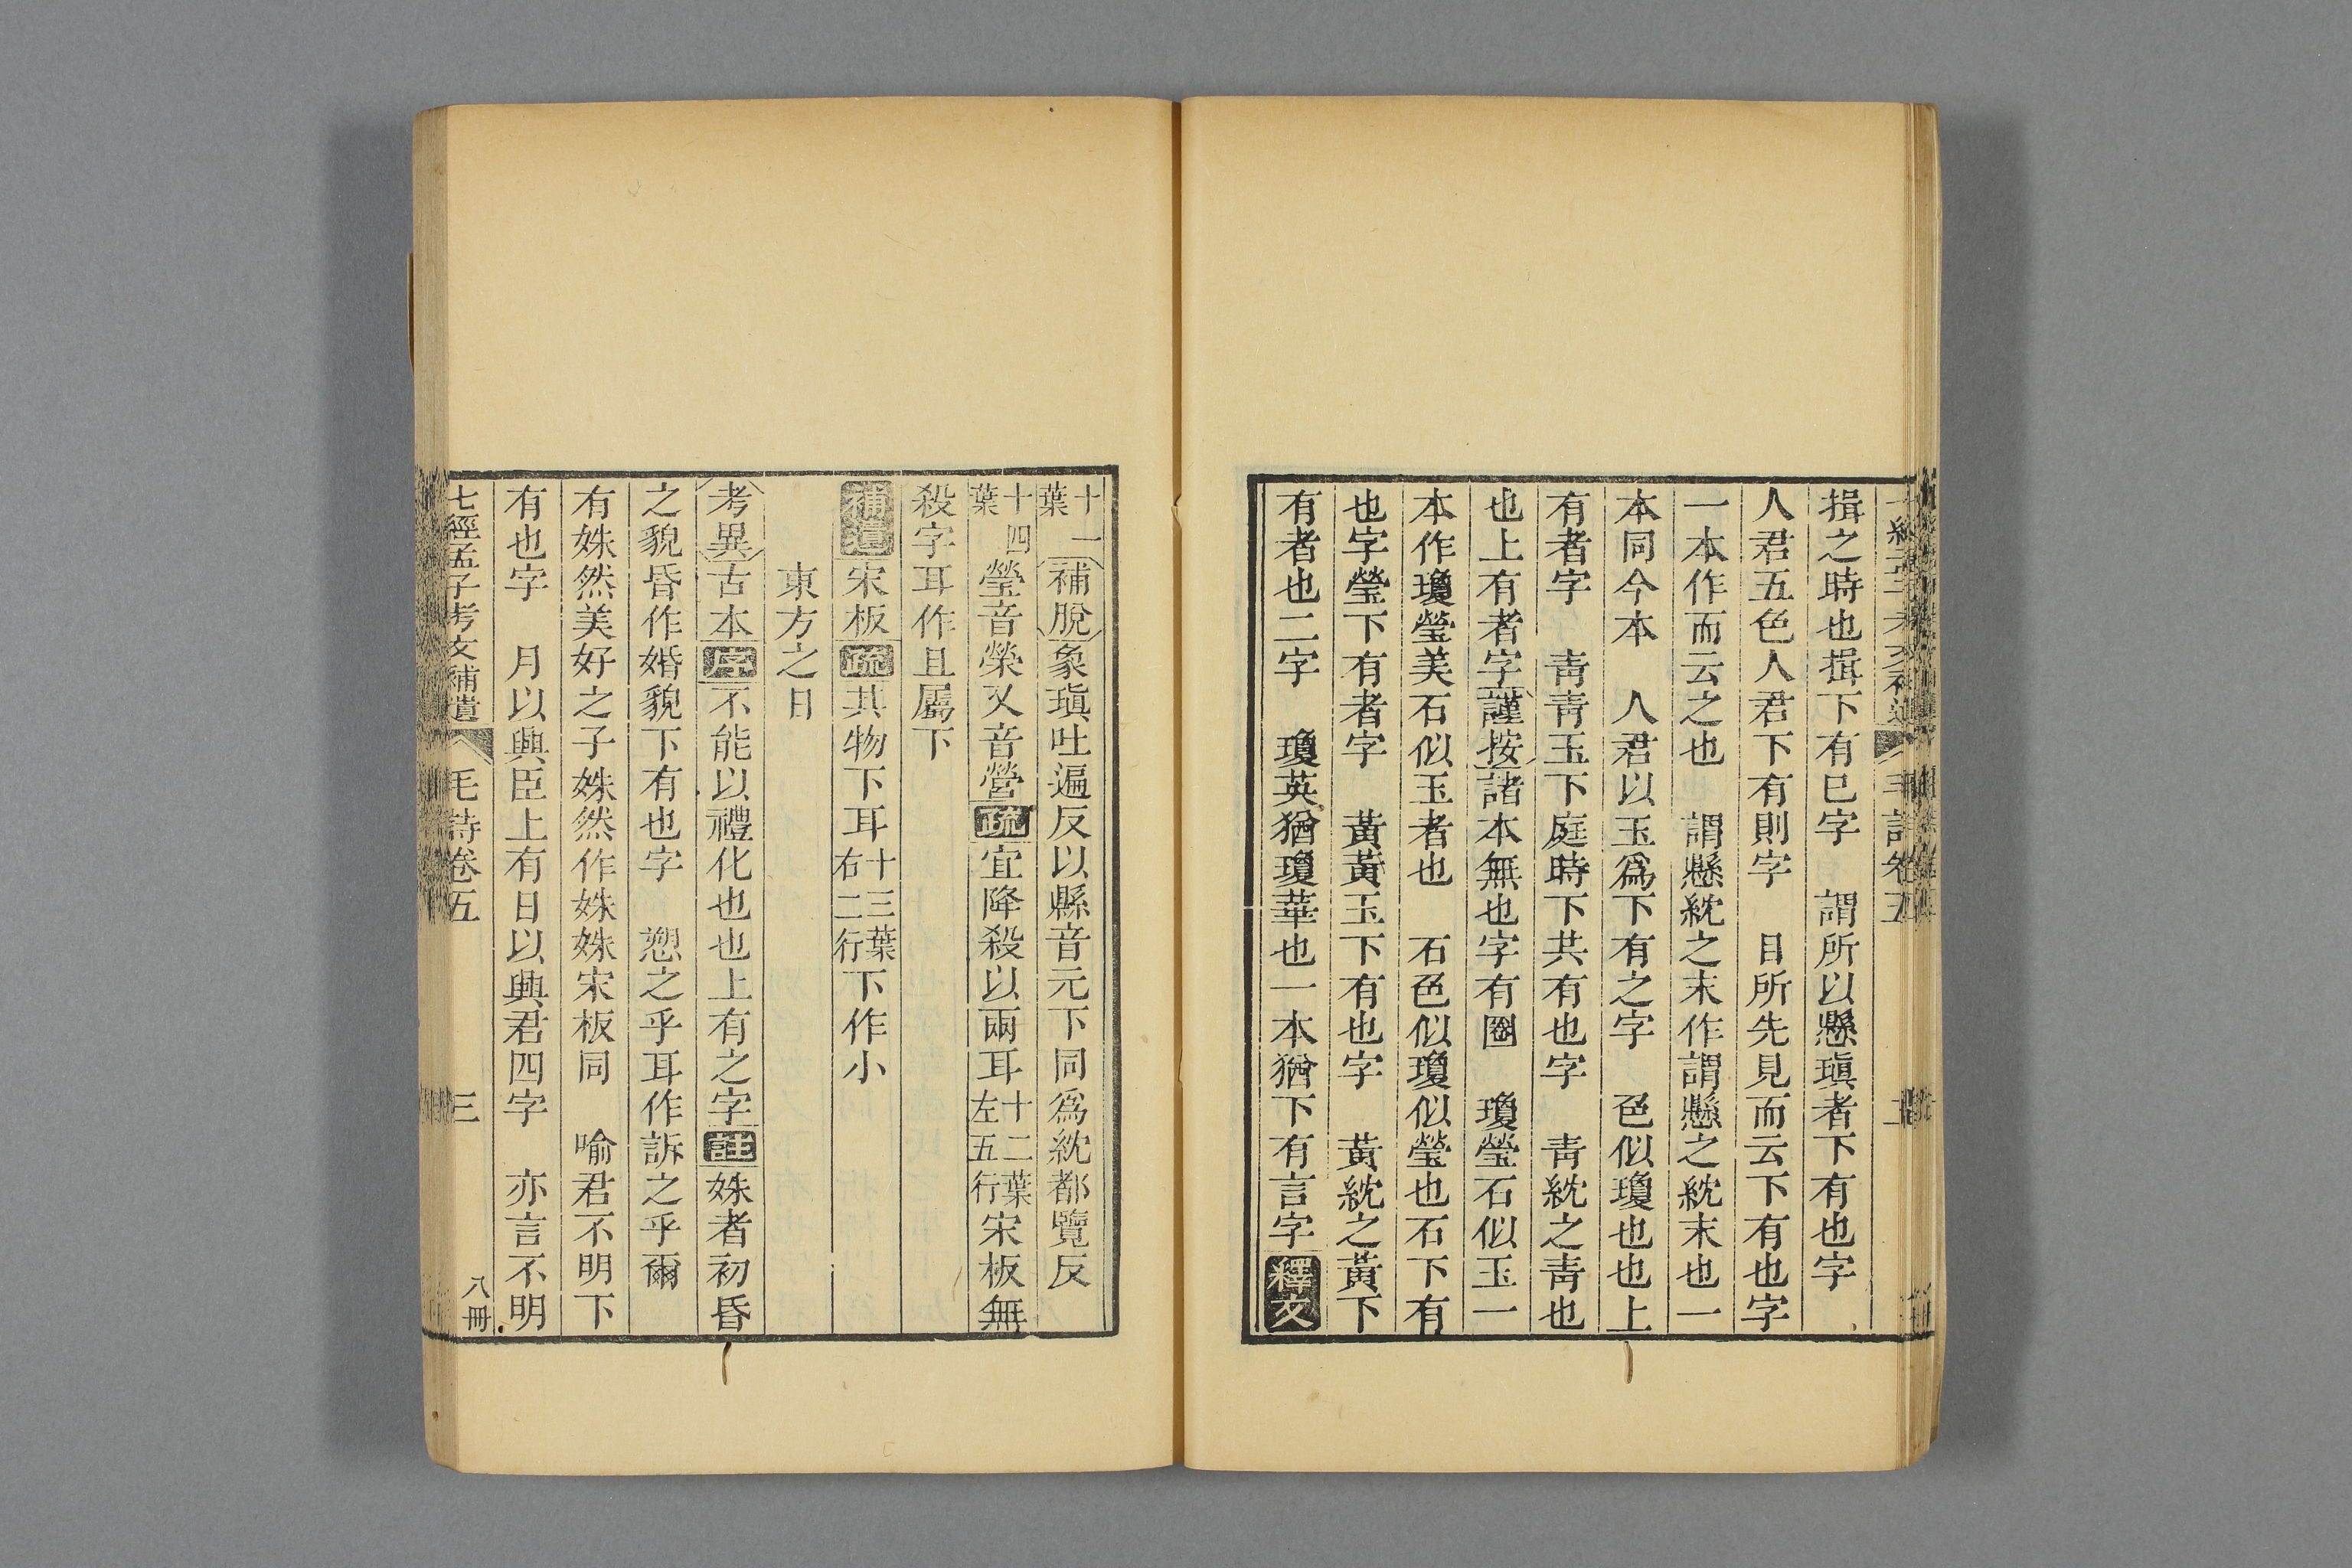 揖之時也揖下有巳字　謂所以懸瑱者下有也字
人君五色人君下有則字　目所先見而云下有也字
一本作而云之也　謂懸紞之末作謂懸之紞末也一
本同今本　人君以玉爲下有之字　色似瓊也也上
有者字　靑靑玉下庭時下共有也字　靑紞之靑也
也上有者字謹按諸本無也字有圈　瓊瑩石似玉一
本作瓊瑩美石似玉者也　石色似瓊似瑩也石下有
也字瑩下有者字　黃黃玉下有也字　黃紞之黃下
有者也二字　瓊英猶瓊華也一本猶下有言字釋文
十一葉補脫象瑱吐遍反以縣音元下同爲紞都覽反
十四葉瑩音榮又音營疏宜降殺以兩耳十二葉左五行宋板無
殺字耳作且屬下
補遺宋板疏其物下耳十三葉右二行下作小
東方之日
考異古本序不能以禮化也也上有之字註姝者初昏
之貌昏作婚貌下有也字　愬之乎耳作訴之乎爾
有姝然美好之子姝然作姝姝宋板同　喻君不明下
有也字　月以興臣上有日以興君四字　亦言不明
七經孟子考文補遺　毛詩卷五　三　八冊